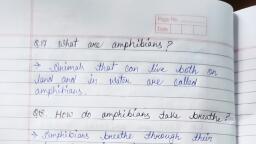 Page No.
Date
Q.17 What are amphibians?
→ Animals that can live both on
land and in water are called
amphibians.
Q18. How do amphibians take breathe?
→ Amphibians breathe through their